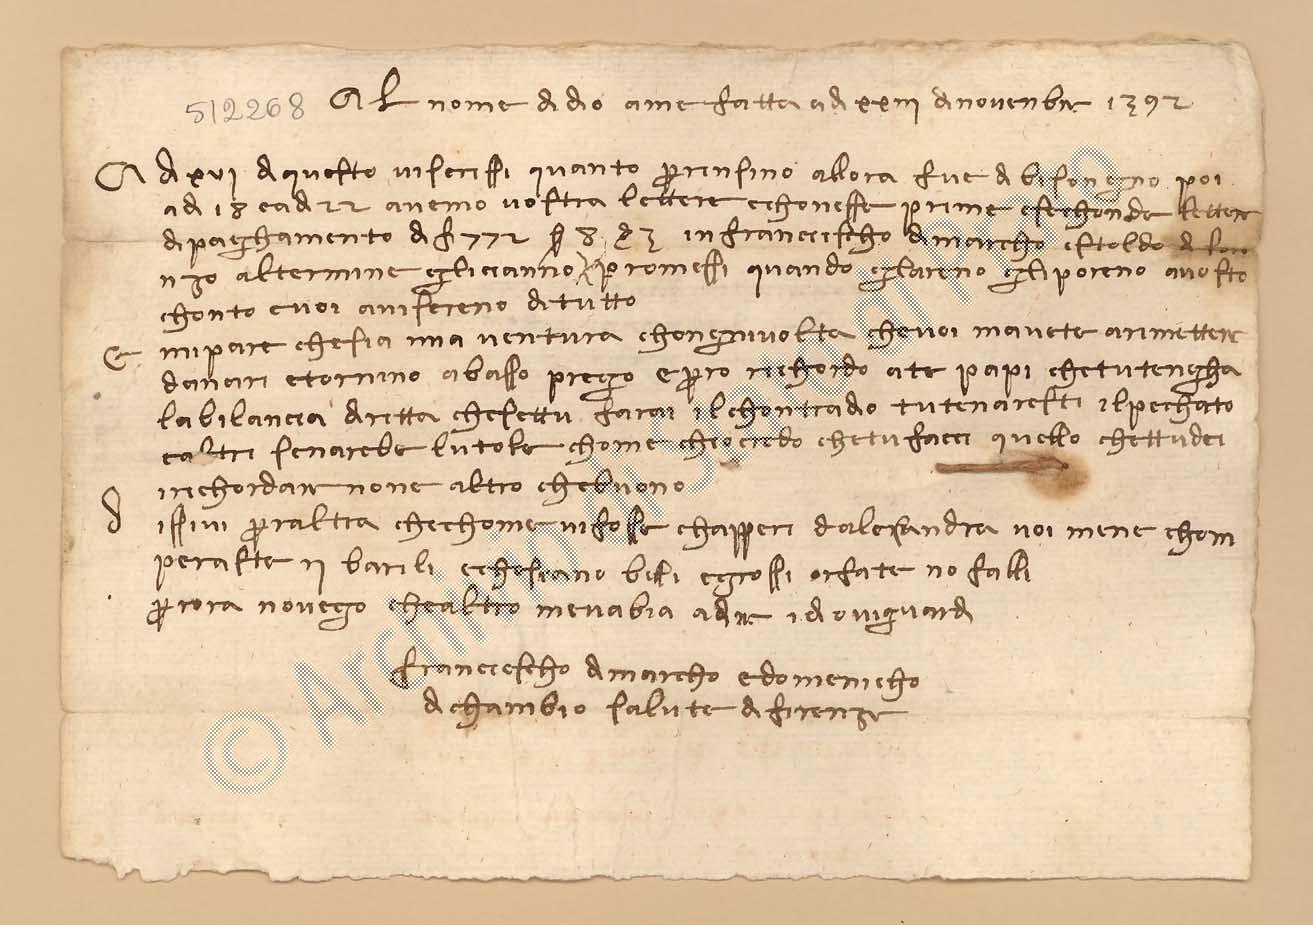 512268 Al nome di dio ame fatta a dì xxiii di novenbre 1392
A dì xvi di questo vi scrissi quanto per insino allora fue di bisongno poi
a dì 18 e a dì 22 avemo vostra lettere e chon esse prime e sechonde letter
di paghamento di f 772 s 8 d 3 in franciescho di marcho e stoldo di lore
nzo al termine e gli ci anno promessi quando gl areno gli poreno a vostro
chonto e voi aviseremo di tutto
E mi pare che sia mia ventura ch ongni volta che voi m avete a rimettere
danari e tornino a basso prego e per ro richordo a te papi che tu tengha
la bilancia diritta che se ttu farai il chontradio tu te n aresti il pechato
e altri se n arebe l utole chome ch io credo che tu facci quello che ttu dei
i richordare non è altro che buono
D issivi per altra che chome vi fosse chapperi d alesandra voi me ne chom
peraste ii barili e che siano begli e grossi or fate no falli
per ora no vego che altro m è v abia a dire idio vi guardi
franciescho di marcho e domenicho
di chambio salute di firenze
© Archivio di Stato di Prato